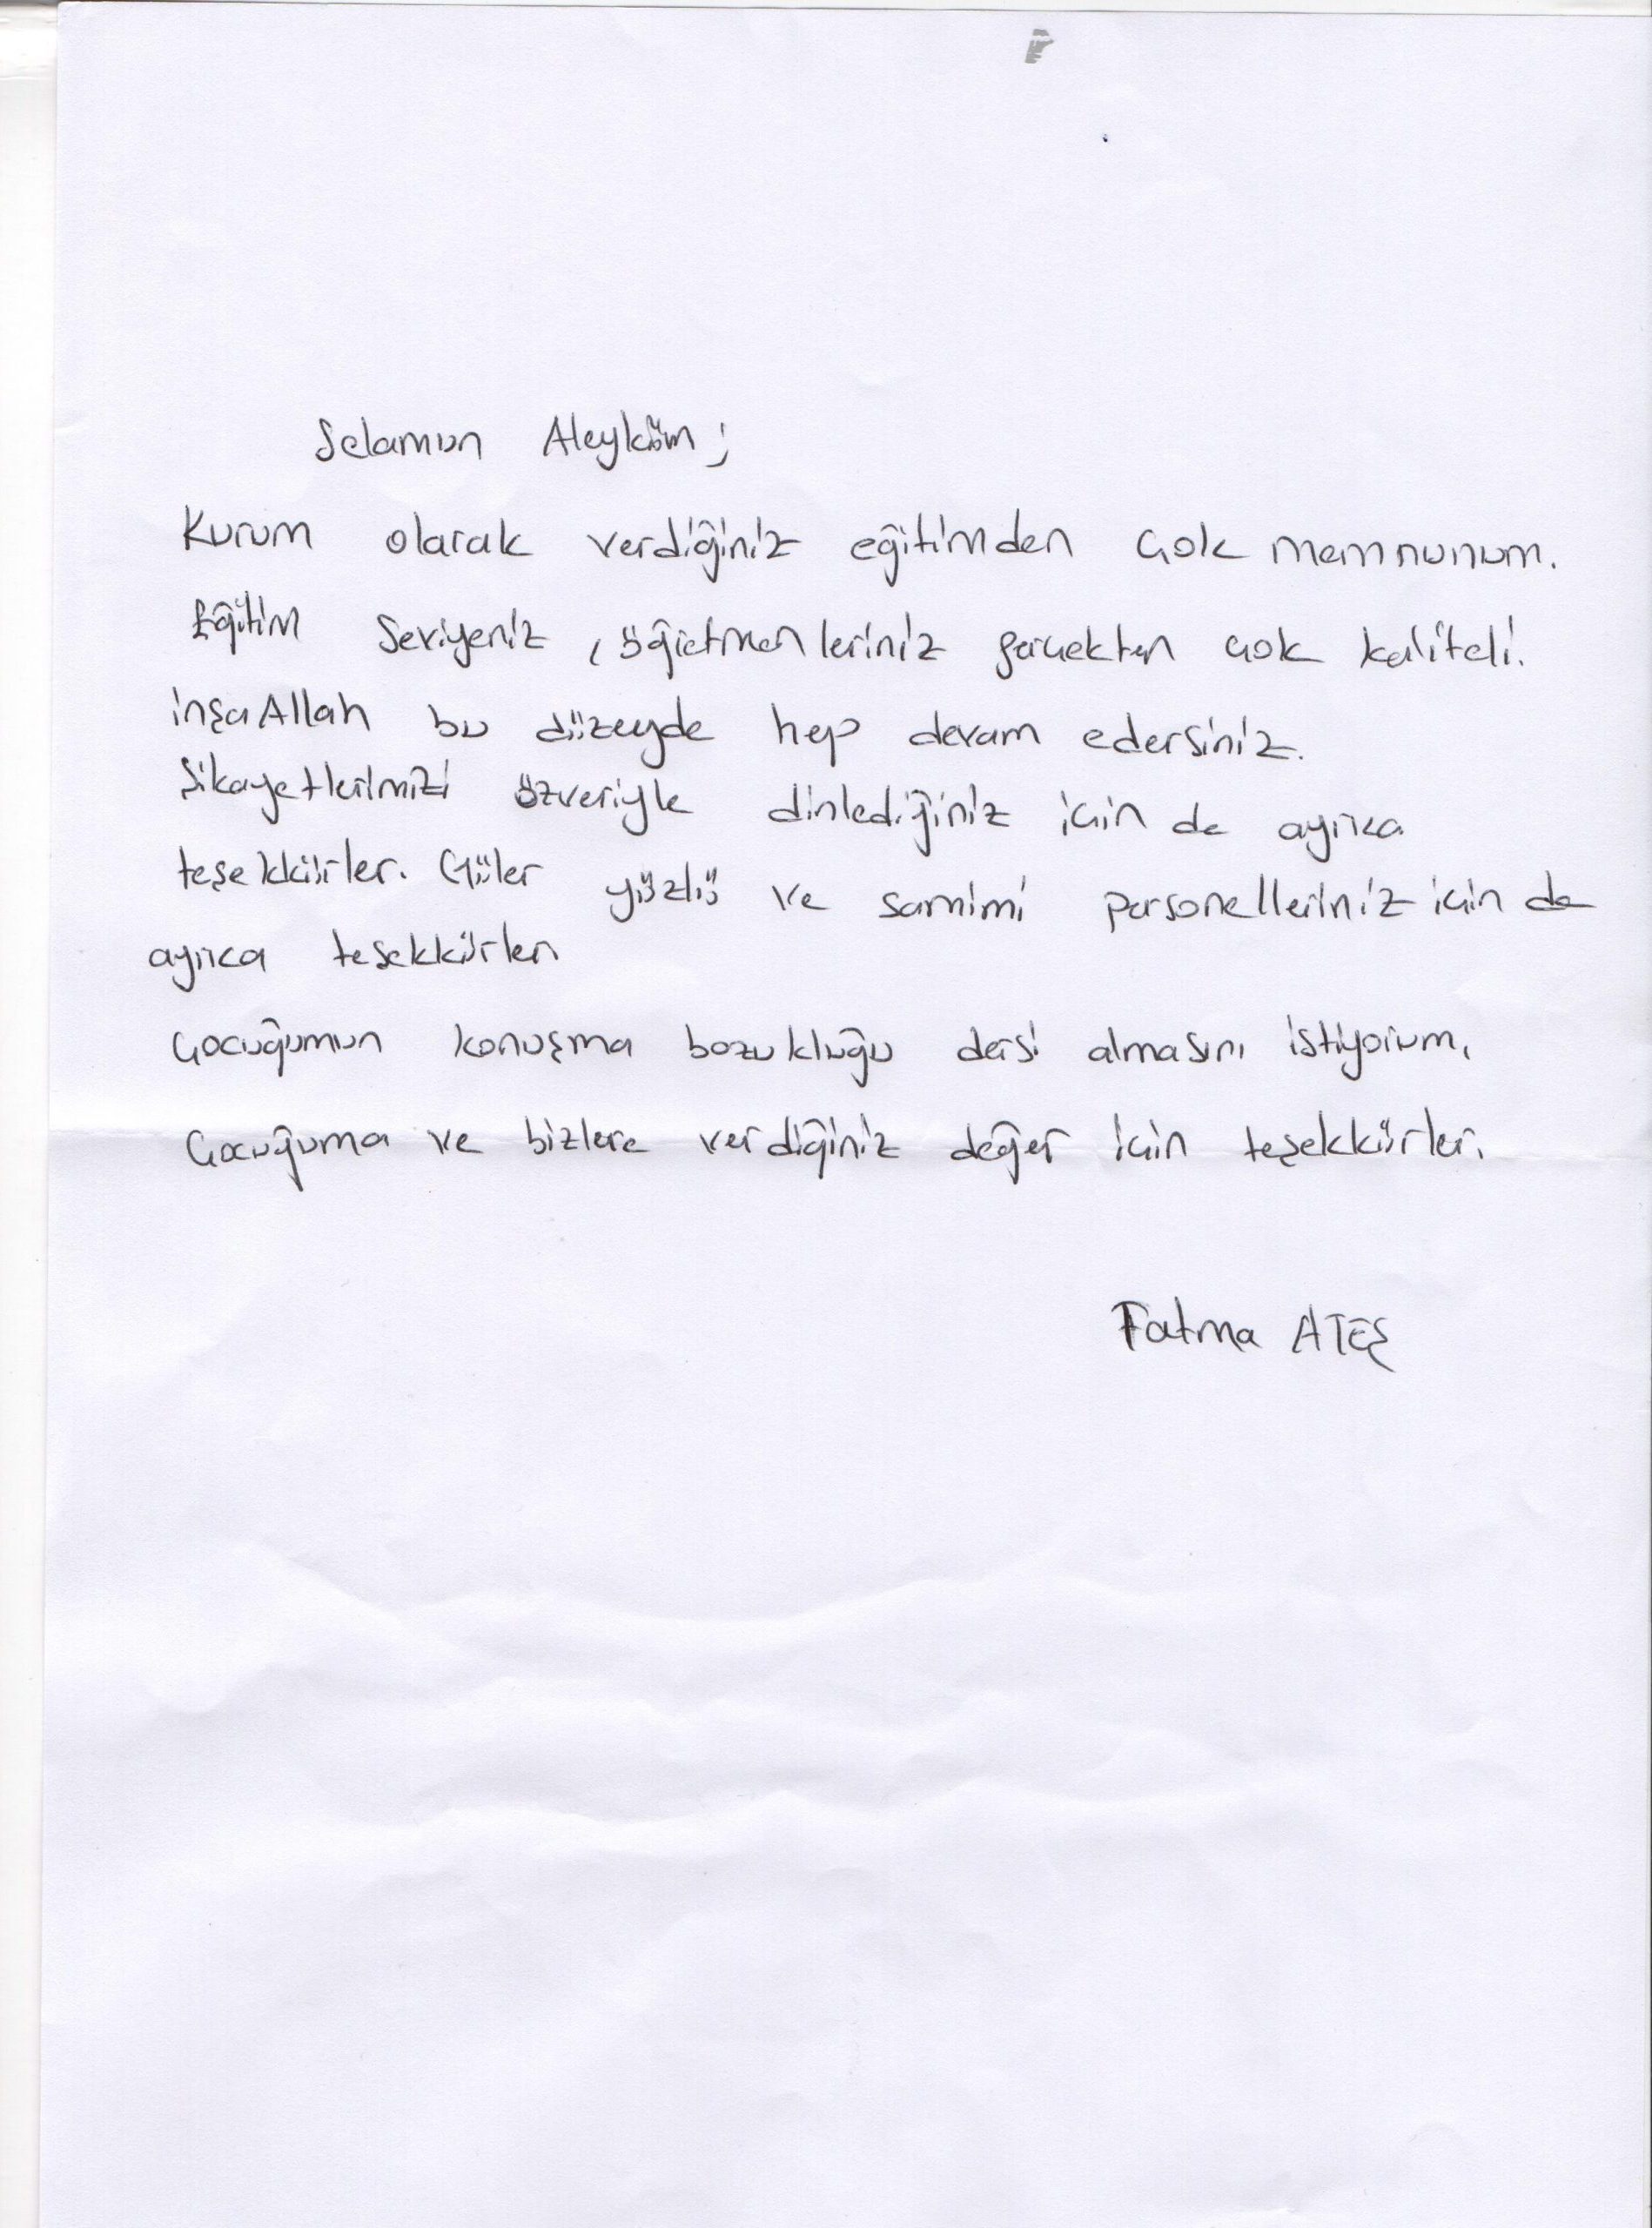 Selamun Aleyküm;
Kurum olarak verdiğiniz eğitimden çok memnunum.
Eğitim seviyeniz, öğretmenleriniz gerçekten çok kaliteli.
inşaAllah bu düzeyde hep devam edersiniz.
Şikayetlerimizi özveriyle dinlediğiniz için de ayrıca
teşekkürler. Güler yüzlü ve samimi personelleriniz için de
ayrıca teşekkürler.
Çocuğumun konuşma bozukluğu dersi almasını istiyorum.
Çocuğuma ve bizlere verdiğiniz değer için teşekkürler.
Fatma ATEŞ